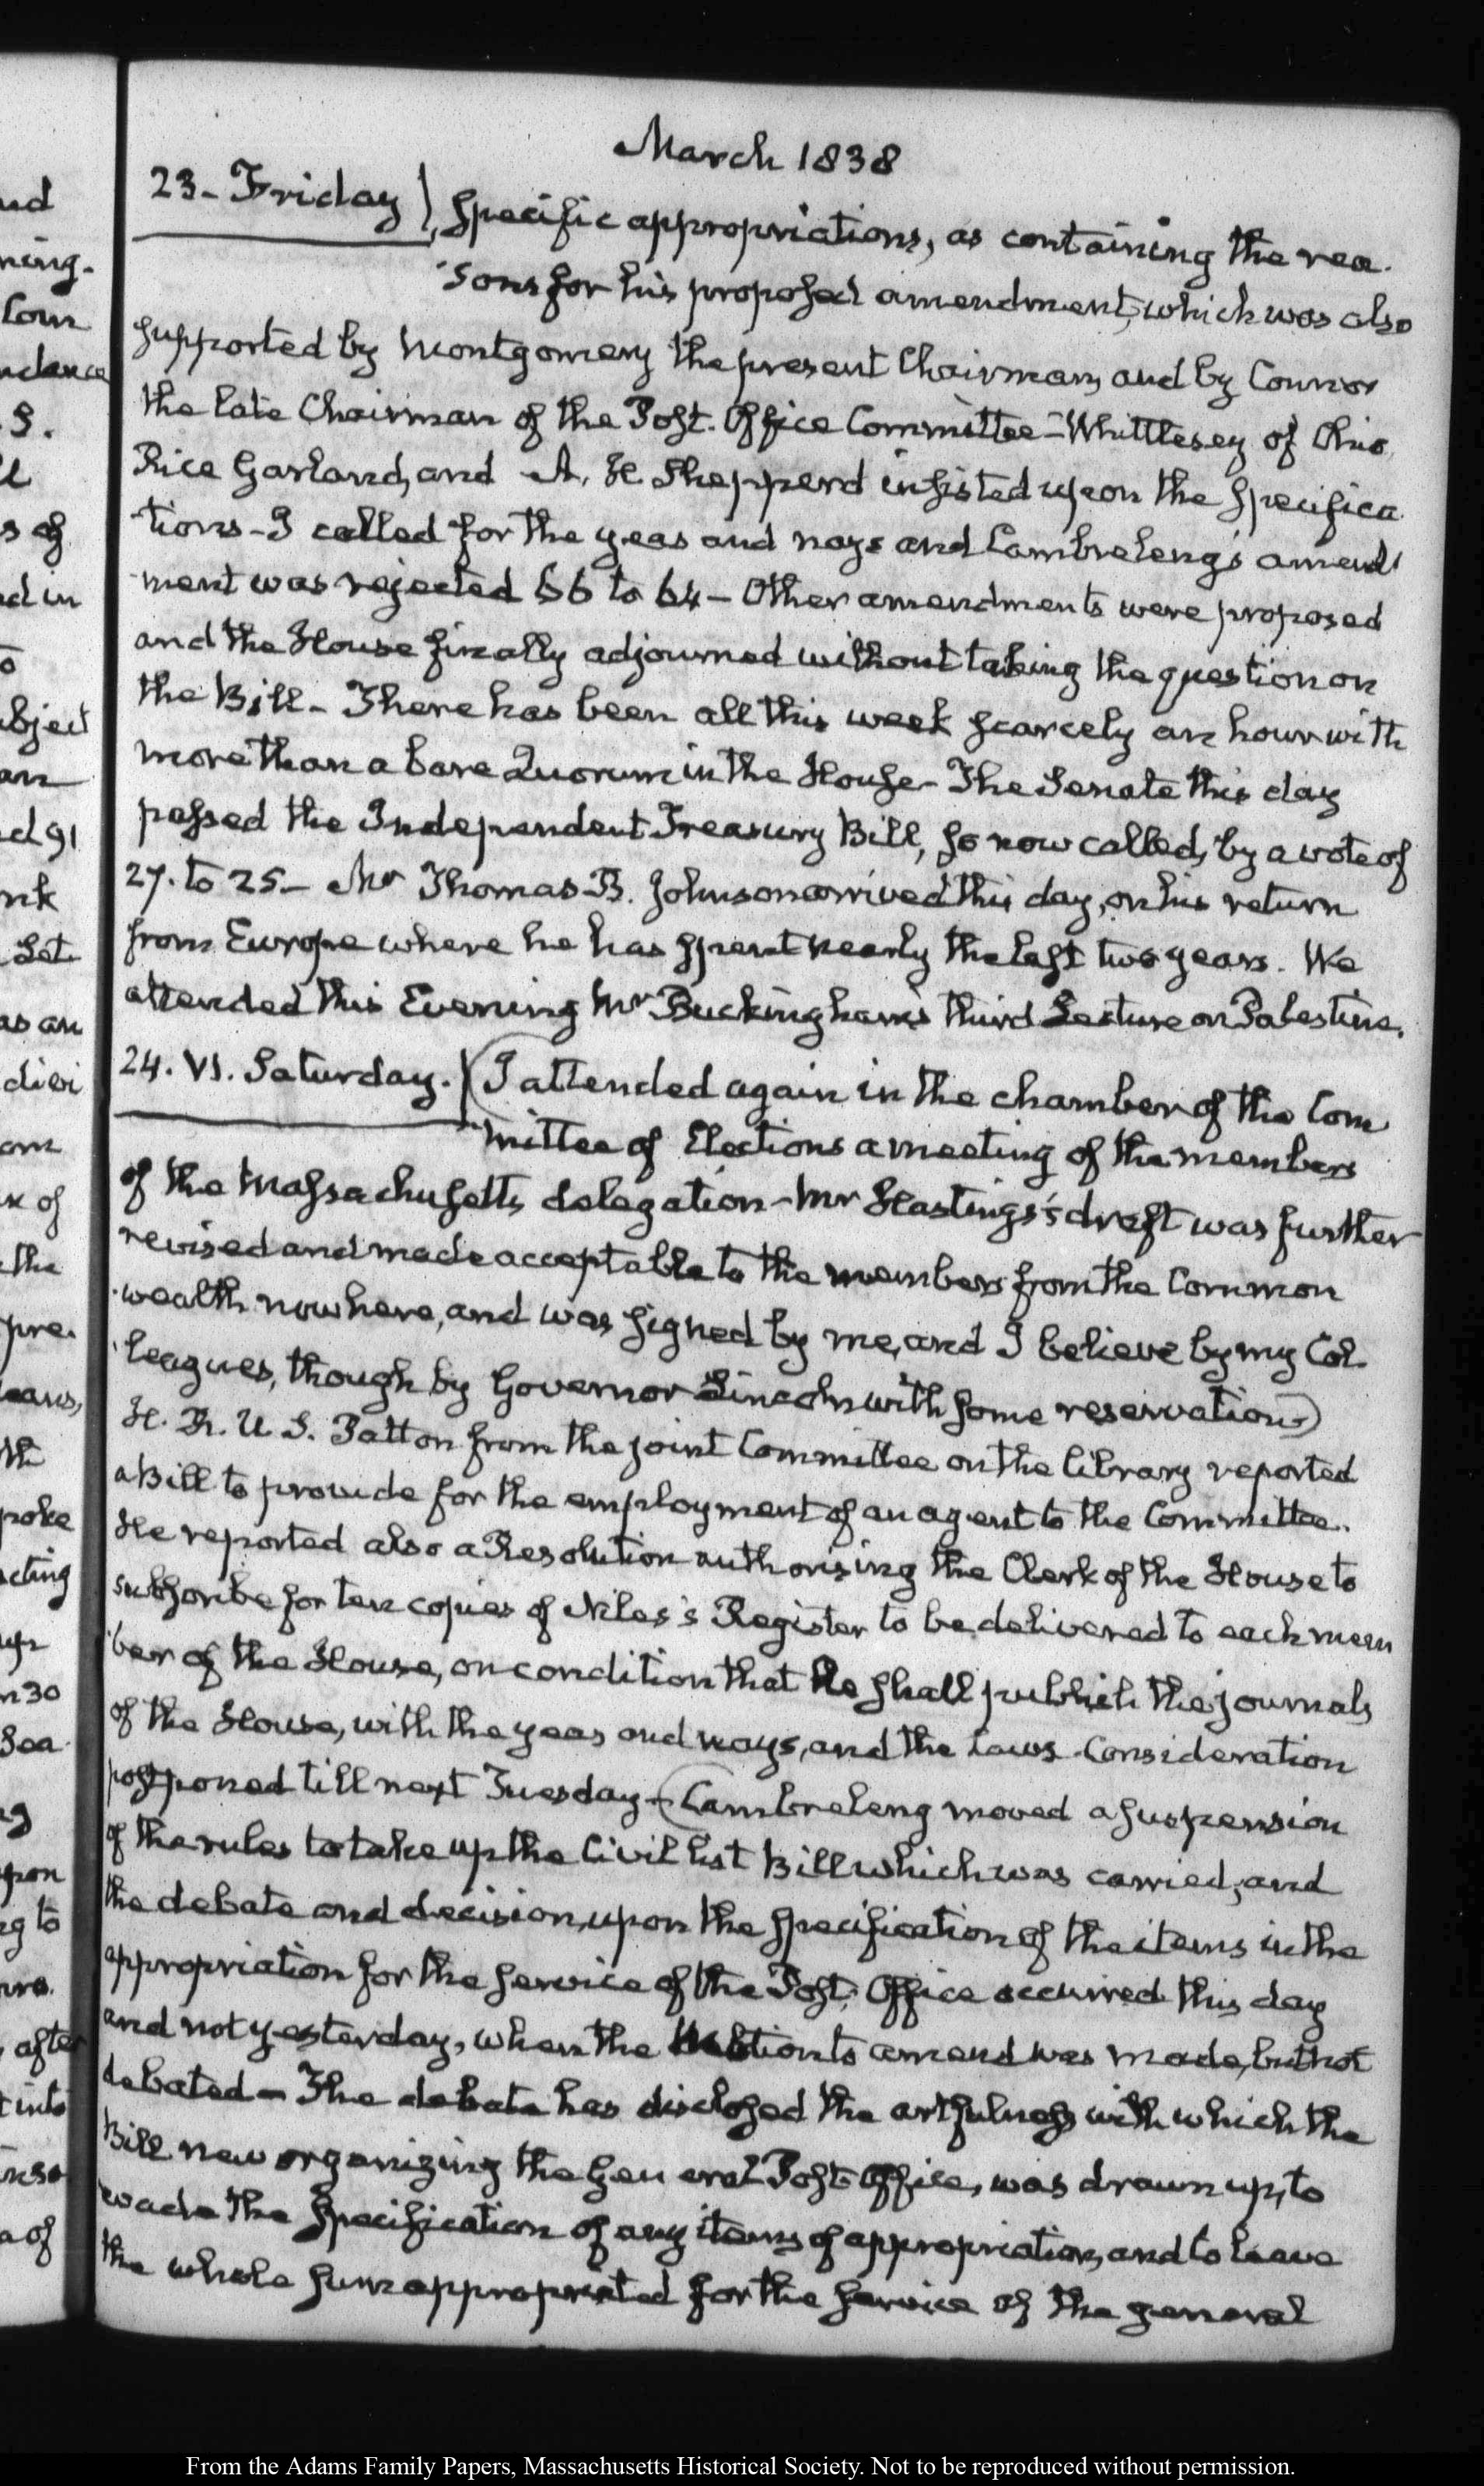 March 1838
23. Friday) Specific appropriations, as containing the rea-
sons for his proposed amendment, which was also
supported by Montgomery the present Chairman, and by Connor
the late Chairman of the Post-Office Committee - Whittlesey of Ohio,
Rice Garland, and A. H. Shepperd insisted upon the specifica
tions - I called for the yeas and nays and Cambreleng's amend
ment was rejected 66 to 64 - Other amendments were proposed
and the House finally adjourned without taking the question on
the Bill - There has been all this week scarcely an hour with
more than a bare Quorum in the House - The Senate this day
passed the Independent Treasury Bill, so now called, by a vote of
27. to 25 - Mr Thomas B. Johnson arrived this day, on his return
from Europe where he has spent nearly the last two years. We
attended this Evening Mr Buckingham's third Lecture on Palestine.
24. VI. Saturday. (I attended again in the chamber of the Com
mittee of Elections a meeting of the members
of the Massachusetts delegation - Mr Hastings's draft was further
revised and made acceptable to the members from the Common
wealth now here, and was signed by me, and I believe by my Col-
leagues, though by Governor Lincoln with some reservation -)
H. R. U. S. Patton from the joint Committee on the library reported
a Bill to provide for the employment of an agent to the Committee.
He reported also a Resolution authorising the Clerk of the House to
subscribe for ten copies of Niles's Register to be delivered to each mem
ber of the House, on condition that he shall publish the journals
of the House, with the yeas and nays, and the Laws - Consideration
postponed till next Tuesday - (Cambreleng moved a suspension
of the rules to take up the Civil list Bill which was carried, and
the debate and decision, upon the specification of the items in the
appropriation for the service of the Post-Office occurred this day
and not yesterday, when the motion to amend was made, but not
debated - The debate has disclosed the artfulness with which the
Bill new organizing the General Post-Office, was drawn up, to
evade the specification of any items of appropriation, and to leave
the whole sum appropriated for the service of the general
nd
ning.
Com
ndance
S.
l
s of
d in
o
bject
an
d 91
nk
Let
as an
divi
om
k of
the
pre.
eans,
th
poke
cting
up
n 30
Sea
g
pon
ng to
ure.
after
t into
nse
of
From the Adams Family Papers, Massachusetts Historical Society. Not to be reproduced without permission.